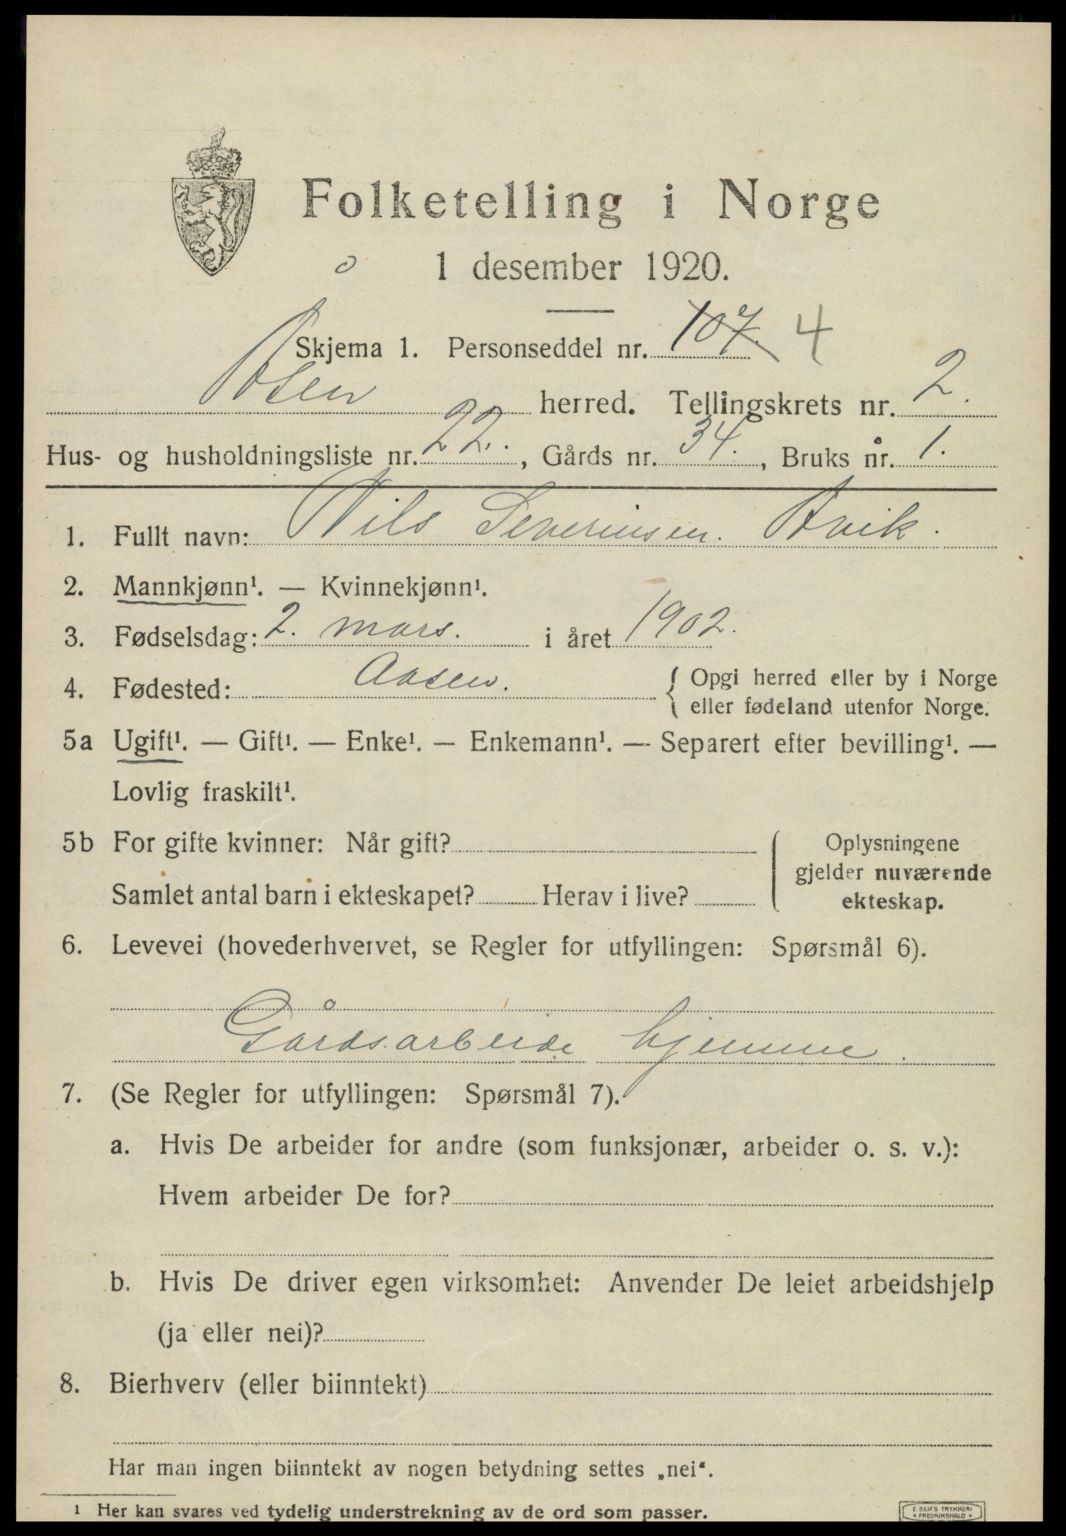 Folketelling i Norge
1 desember 1920.
Skjema 1. Personseddel nr. 107. 4
Åsen herred. Tellingskrets nr. 2.
Hus- og husholdningsliste nr. 22., Gårds nr. 34., Bruks nr. 1.
1. Fullt navn: Nils Severinsen. Hvik.
2. Mannkjønn¹. — Kvinnekjønn¹.
3. Fødselsdag: 2. mars. i året 1902.
4. Fødested: Aasen. { Opgi herred eller by i Norge
eller fødeland utenfor Norge.
5a Ugift¹. — Gift¹. — Enke¹. — Enkemann¹. — Separert efter bevilling¹. —
Lovlig fraskilt¹.
5b For gifte kvinner: Når gift?
Samlet antal barn i ekteskapet? Herav i live?
Oplysningene
gjelder nuværende
ekteskap.
6. Levevei (hovederhvervet, se Regler for utfyllingen: Spørsmål 6).
Gårdsarbeide hjemme.
7. (Se Regler for utfyllingen: Spørsmål 7).
a. Hvis De arbeider for andre (som funksjonær, arbeider o. s. v.):
Hvem arbeider De for?
b. Hvis De driver egen virksomhet: Anvender De leiet arbeidshjelp
(ja eller nei)?
8. Bierhverv (eller biinntekt)
Har man ingen biinntekt av nogen betydning settes „nei“.
¹ Her kan svares ved tydelig understrekning av de ord som passer.